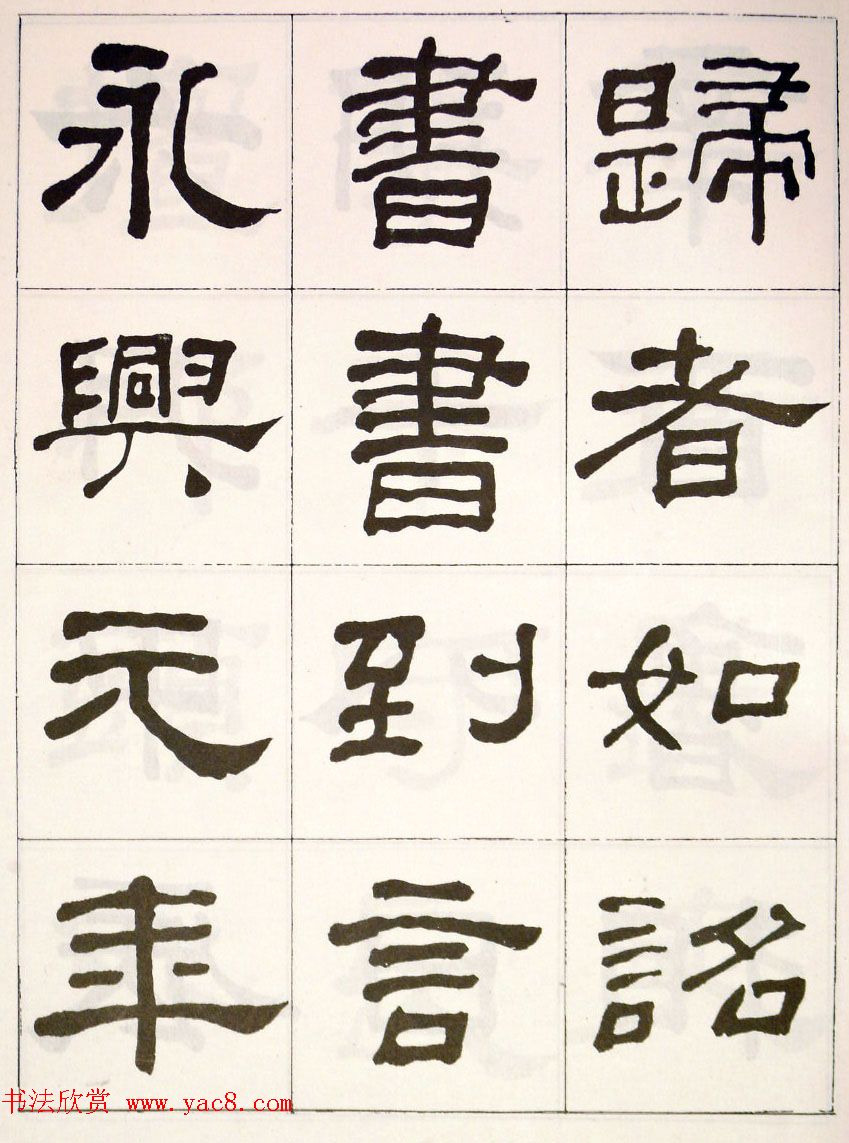 歸者如詔
書書到言
永興元年
书法欣赏 www.yac8.com